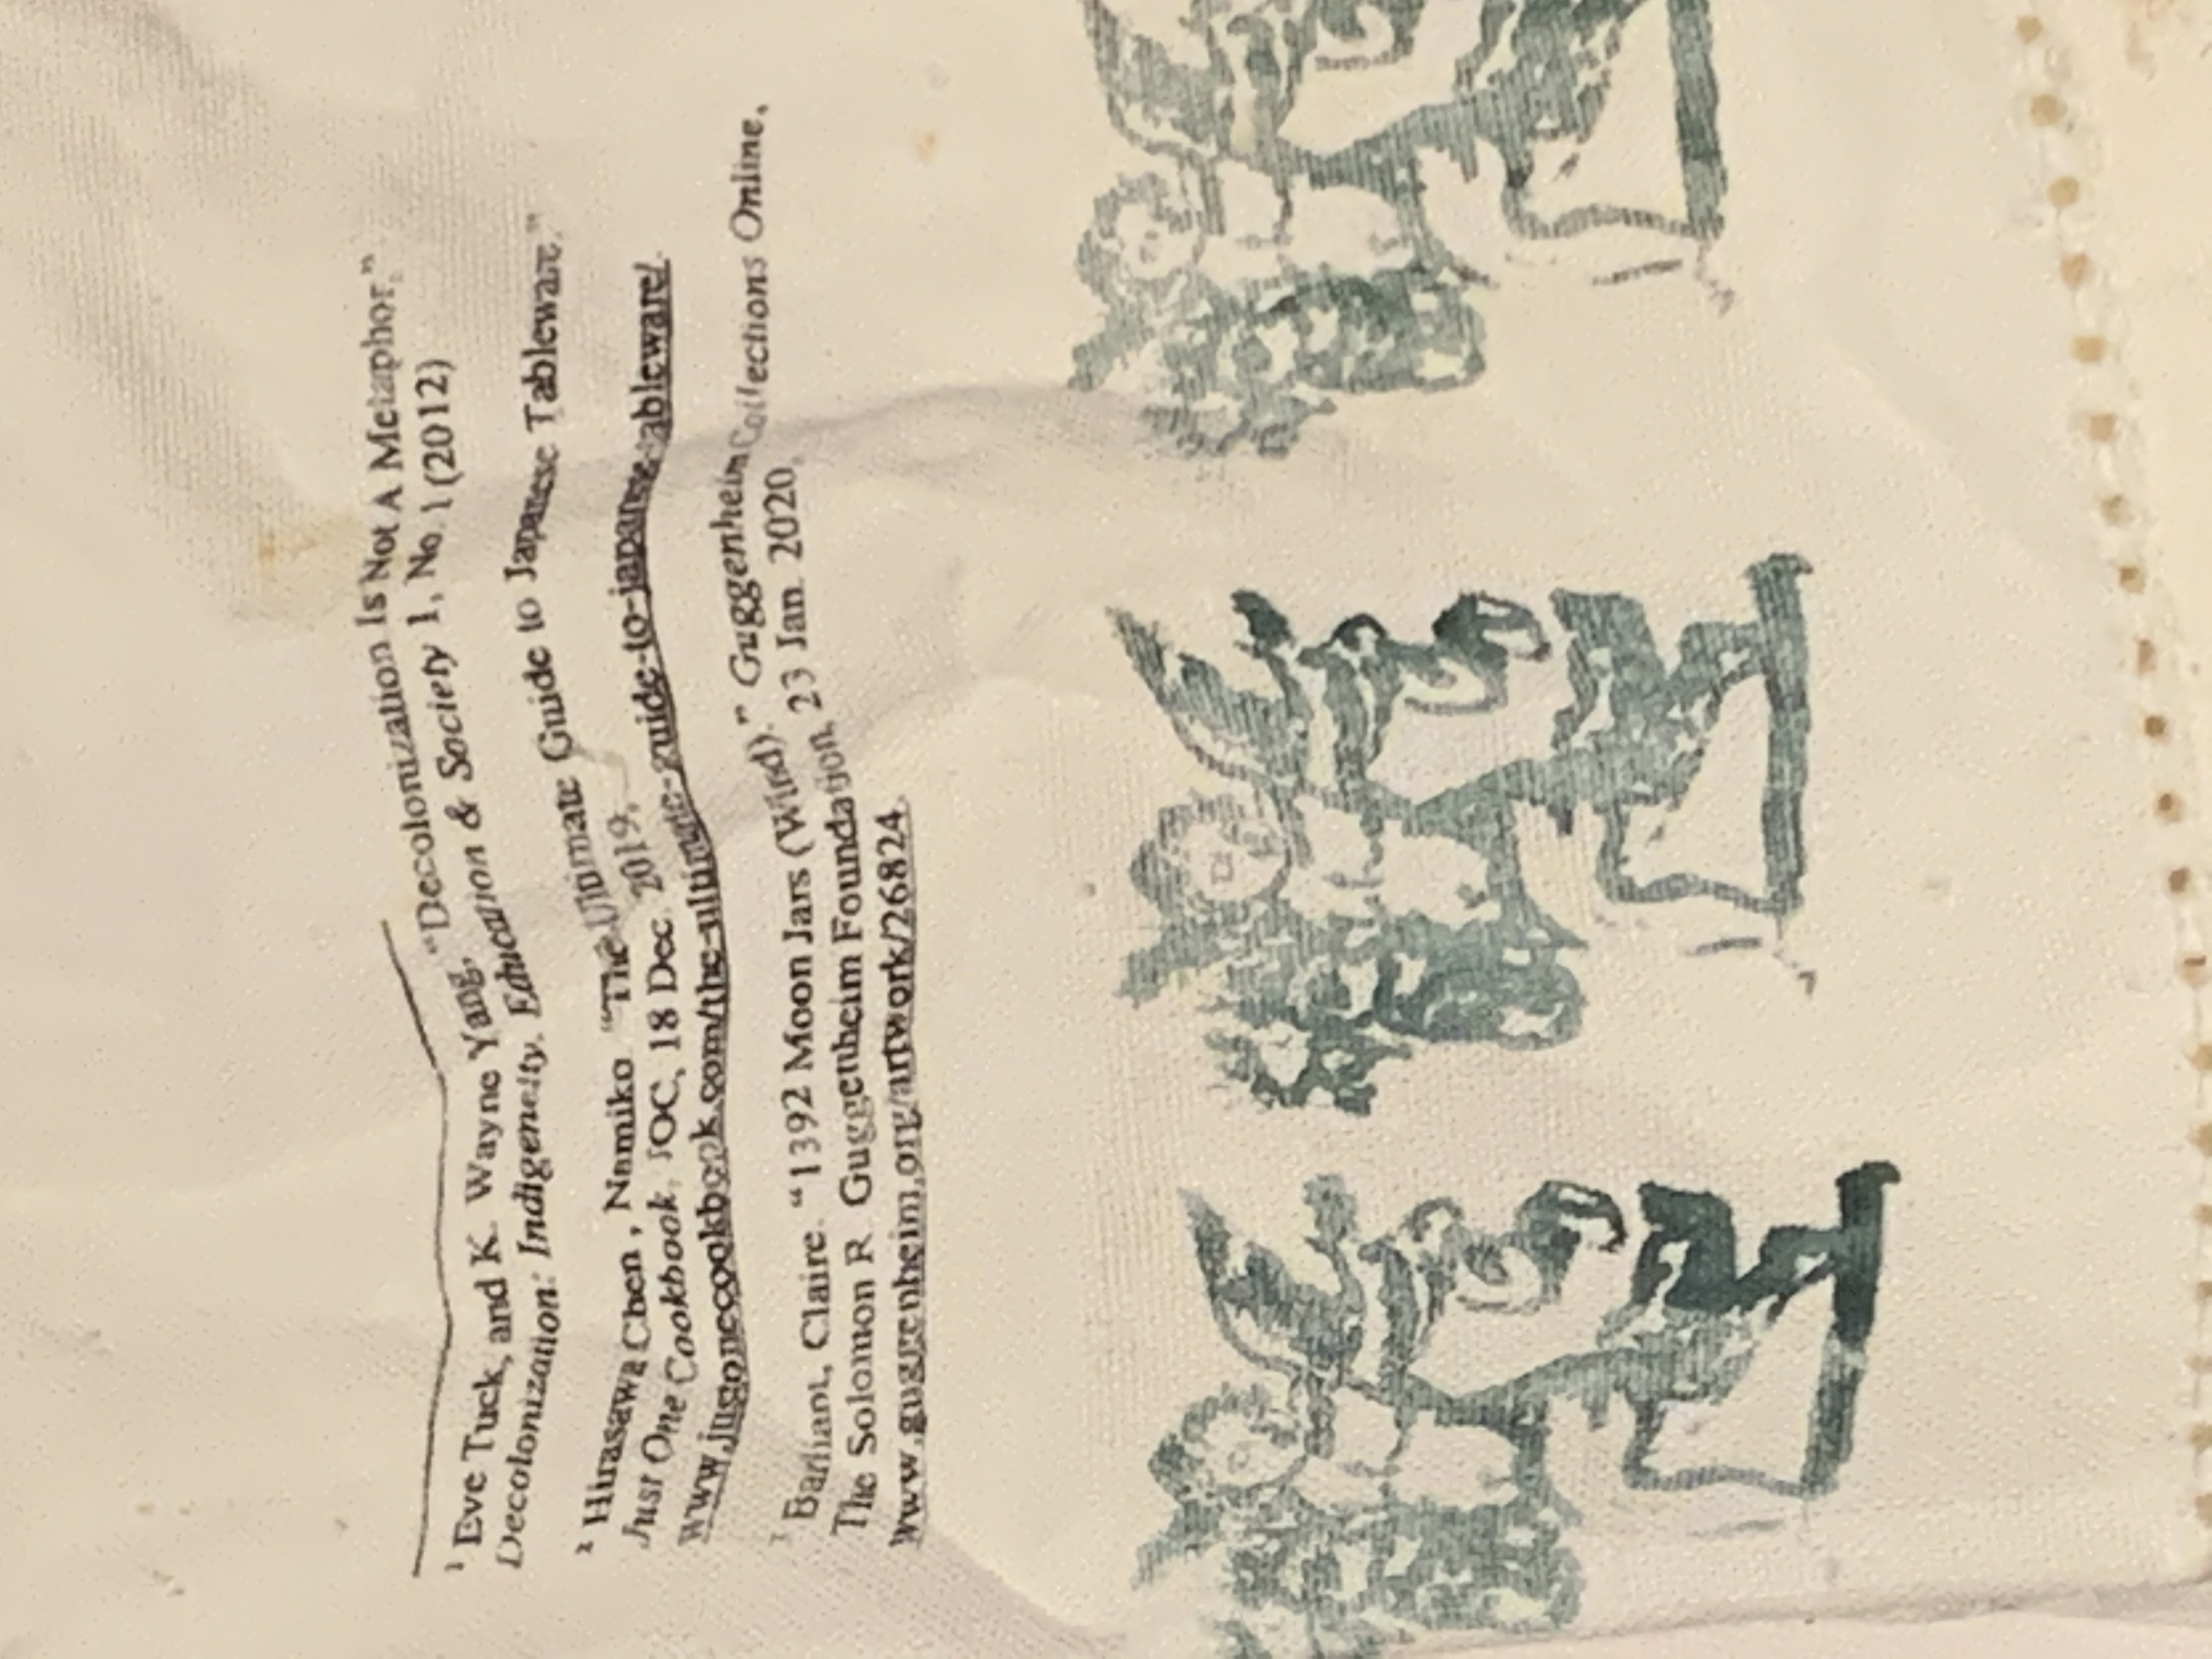 ¹ Eve Tuck, and K. Wayne Yang, "Decolonization Is Not A Metaphor,"
Decolonization: Indigeneity, Education & Society 1, No. 1 (2012)
² Hirasawa Chen , Namiko "The Ultimate Guide to Japanese Tableware."
Just One Cookbook, JOC, 18 Dec. 2019,
www.justonecookbook.com/the-ultimate-guide-to-japanese-tableware/.
³ Barliant, Claire. "1392 Moon Jars (Wind)." Guggenheim Collections Online,
The Solomon R. Guggenheim Foundation, 23 Jan. 2020,
www.guggenheim.org/artwork/26824.